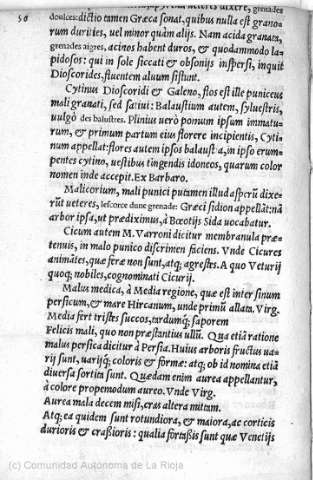 56
doulces: dictio tamen Græca sonat, quibus nulla est granorum
durities, uel minor quàm alijs. Nam acida granata,
grenades aigres, acinos habent duros, & quodammodo lapidosos:
qui in sole siccati & obsonijs inspersi, inquit
Dioscorides, fluentem aluum sistunt.
Cytinus Dioscoridi & Galeno, flos est ille puniceus
mali granati, sed satiui: Balaustium autem, syluestris,
uulgò des balustres. Plinius uerò pomum ipsum immaturum,
& primum partum eius florere incipientis, Cytinum
appellat: flores autem ipsos balausta, in ipso erumpentes
cytino, uestibus tingendis idoneos, quarum color
nomen inde accepit. Ex Barbaro.
Malicorium, mali punici putamen illud asperũ dixerũt
ueteres, lescorce dune grenade: Græci sidion appellãt: nã
arbor ipsa, ut prædiximus, à Bœotijs Sida uocabatur.
Cicum autem M. Varroni dicitur membranula prætenuis,
in malo punico discrimen faciens. Vnde Cicures
animãtes, quæ feræ non sunt, atq; agrestes. A quo Veturij
quoq; nobiles, cognominati Cicurij.
Malus medica, à Media regione, quæ est inter sinum
persicum, & mare Hircanum, unde primũ allata. Virg.
Media fert tristes succos, tardumq; saporem
Felicis mali, quo non præstantius ullũ. Quà etiã ratione
malus persica dicitur à Persia. Huius arboris fructus uarij
sunt, uarijq; coloris & formæ: atq; ob id nomina etiã
diuersa sortiti sunt. Quædam enim aurea appellantur,
à colore propemodum aureo. Vnde Virg.
Aurea mala decem misi, cras altera mittam.
Atq; ea quidem sunt rotundiora, & maiora, ac corticis
durioris & crassioris: qualia fortassis sunt quæ Venetijs
(c) Comunidad Autónoma de La Rioja